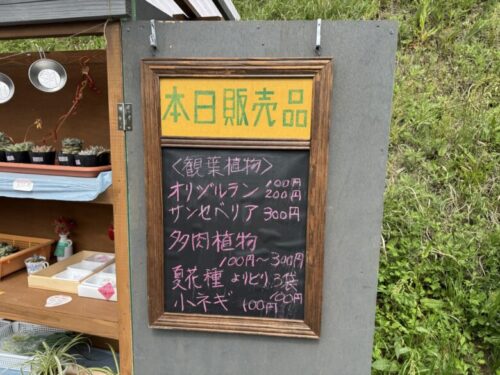 本日販売品
〈観葉植物〉
オリヅルラン 100円 200円
サンセベリア 300円
多肉植物
100円〜300円
夏花種 よりどり3袋 100円
小ネギ 100円